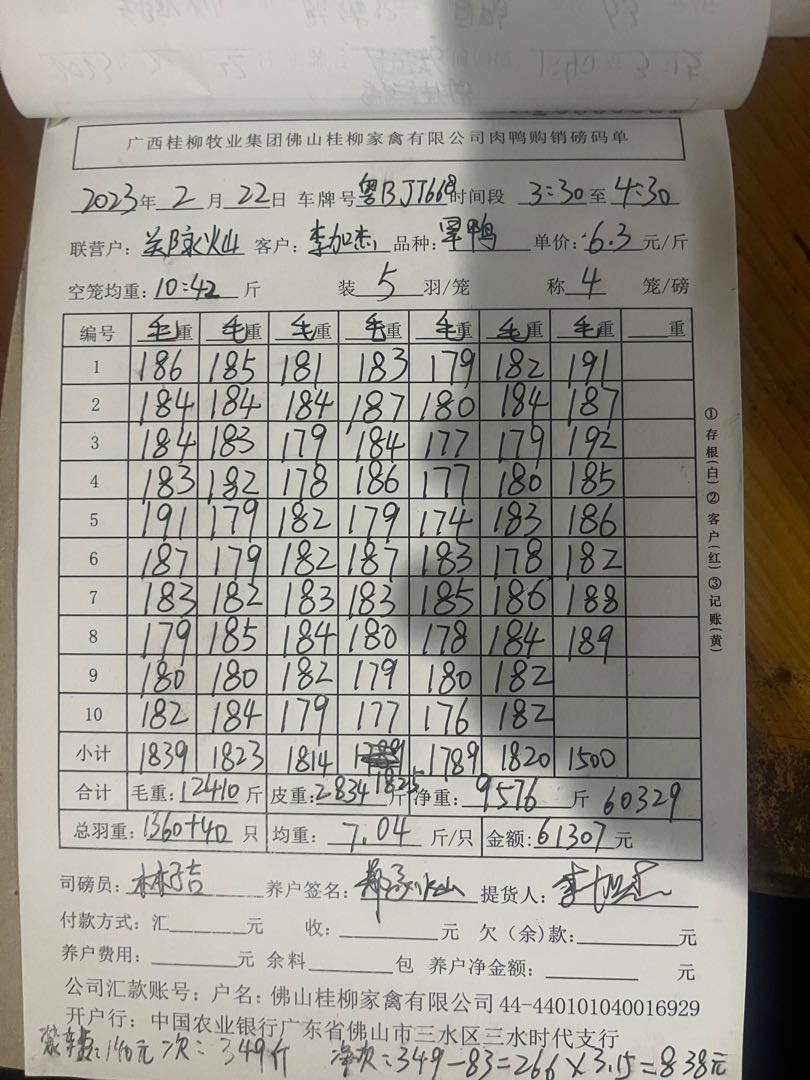 广西桂柳牧业集团佛山桂柳家禽有限公司肉鸭购销磅码单
2023年 2 月 22日 车牌号粤BJT668时间段 3:30 至 4:30
联营户: 火山 客户: 李加杰 品种: 旱鸭 单价: 6.3 元/斤
空笼均重: 10:42 斤 装 5 羽/笼 称 4 笼/磅
编号 毛重 毛重 毛重 毛重 毛重 毛重 毛重 重
1 186 185 181 183 179 182 191
2 184 184 184 187 180 184 187
3 184 183 179 184 177 179 192
4 183 182 178 186 177 180 185
5 191 179 182 179 174 183 186
6 187 179 182 187 183 178 182
7 183 182 183 183 185 186 188
8 179 185 184 180 178 184 189
9 180 180 182 179 180 182
10 182 184 179 177 176 182
小计 1839 1823 1814 1825 1789 1820 1500
合计 毛重: 12410 斤 皮重: 2834 斤 净重: 9576 斤 60329
总羽重: 1360+40 只 均重: 7.04 斤/只 金额: 61307 元
司磅员: 养户签名: 火山 提货人: 李加杰
付款方式: 汇 元 收: 元 欠(余)款: 元
养户费用: 元 余料 包 养户净金额: 元
公司汇款账号: 户名: 佛山桂柳家禽有限公司 44-440101040016929
开户行: 中国农业银行广东省佛山市三水区三水时代支行
140元 次: 349斤 净次: 349-83=266×3.15=838元
①存根(白)②客户(红)③记账(黄)